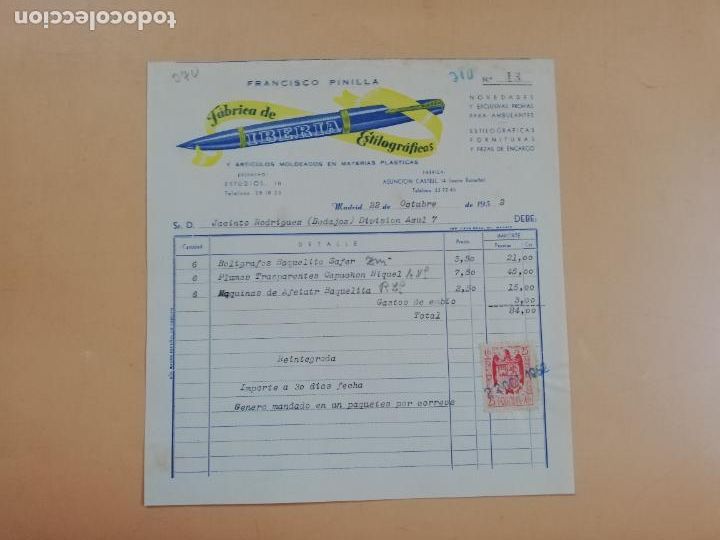 todocoleccion
FRANCISCO PINILLA
310 Nº 13
Fábrica de
IBERIA
Estilográficas
Y ARTICULOS MOLDEADOS EN MATERIAS PLASTICAS
NOVEDADES
Y EXCLUSIVAS PROPIAS
PARA AMBULANTES
ESTILOGRAFICAS
FORNITURAS
Y PIEZAS DE ENCARGO
DESPACHO:
ESTUDIOS, 16
Teléfono
FABRICA:
ASUNCION CASTELL, 14
Teléfono
Madrid, 22 de Octubre de 1952
Sr. D. Jacinto Rodriguez (Badajos) Division Azul 7 DEBE:
Cantidad DETALLE Precio IMPORTE
Pesetas Cts.
6 Boligrafos Baquelite Gafer 3,50 21,00
6 Plumas Trasparentes Capuchon Niquel 7,50 45,00
6 Maquinas de Afeiatr Baquelita 2,50 15,00
Gastos de enbio 3,00
Total 84,00
Reintegrada
Importe a 30 dias fecha
Genero mandado en un paquetes por correos
25